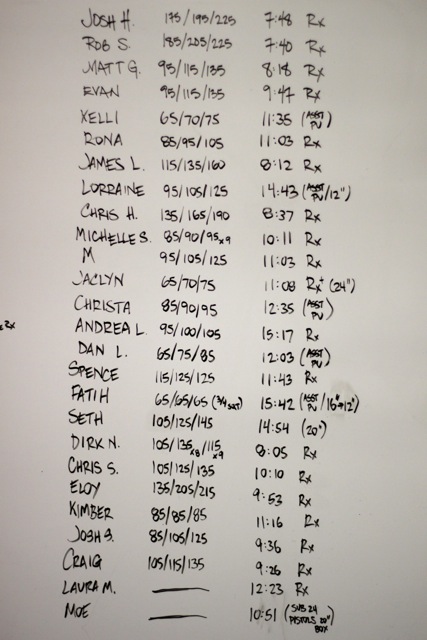 JOSH H. 175/195/225 7:48 Rx
ROB S. 185/205/225 7:40 Rx
MATT G. 95/115/135 8:18 Rx
EVAN 95/115/135 9:47 Rx
KELLI 65/70/75 11:35 (ASST PU)
RONA 85/95/105 11:03 Rx
JAMES L. 115/135/160 8:12 Rx
LORRAINE 95/105/125 14:43 (ASST PU/12")
CHRIS H. 135/165/190 8:37 Rx
MICHELLE S. 85/90/95x9 10:11 Rx
M 95/105/125 11:03 Rx
JACLYN 65/70/75 11:08 Rx+ (24")
CHRISTA 85/90/95 12:35 (ASST PU)
Rx ANDREA L. 95/100/105 15:17 Rx
DAN L. 65/75/85 12:03 (ASST PU)
SPENCE 115/125/125 11:43 Rx
FATIH 65/65/65 (3/4 SQT) 15:42 (ASST PU/16"→12")
SETH 105/125/145 14:54 (20")
DIRK N. 105/135x8/115x9 8:05 Rx
CHRIS S. 105/125/135 10:10 Rx
ELOY 135/205/215 9:53 Rx
KIMBER 85/85/85 11:16 Rx
JOSH S. 85/105/125 9:36 Rx
CRAIG 105/115/135 9:26 Rx
LAURA M. 12:23 Rx
MOE 10:51 (SUB 24 PISTOLS 20" BOX)